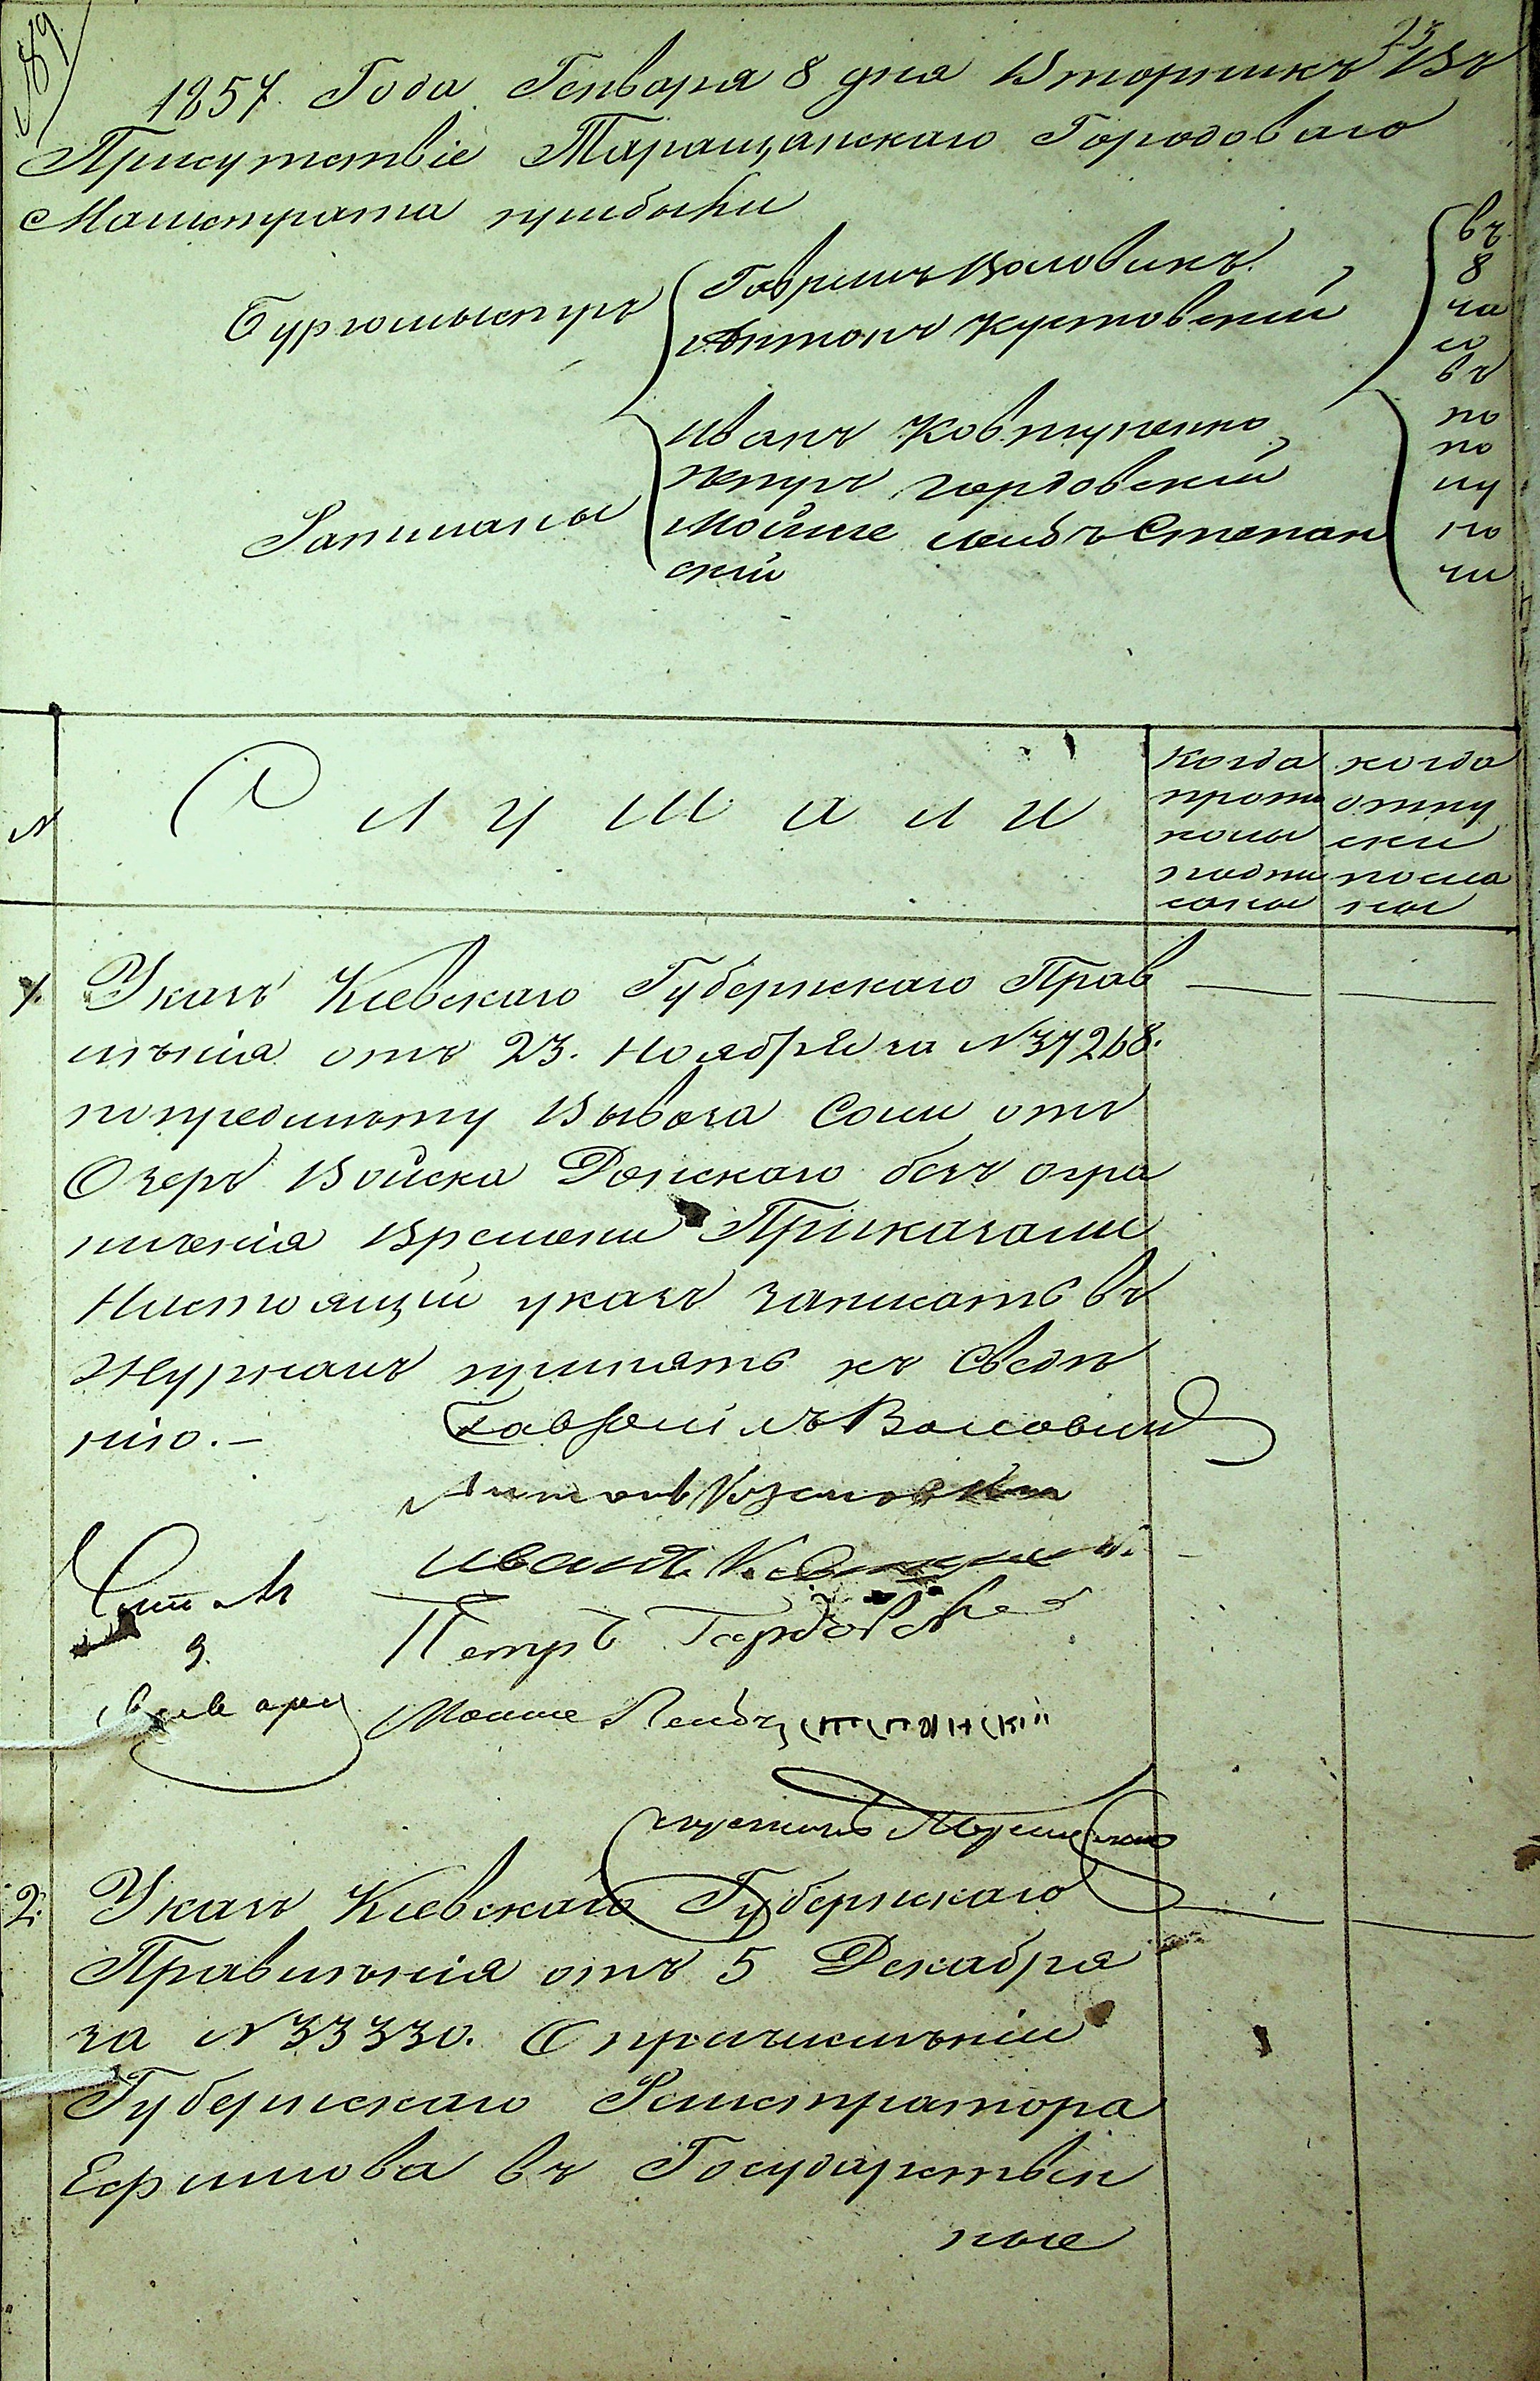 № 9
23
1857. Года Генваря 8 дня Вторникъ Въ
Присутствіе Таращанскаго Городоваго
Магистрата прибыли
Бургомыстръ
Гаврилъ Воловикъ
Антонъ Кустовскій
въ
8
ча
со
въ
по
по
лу
но
чи
Иванъ Ковтуненко
петръ гордовскій
Ратманы
Мойше Лейбъ Степан
скій
№
Слушали
когда
прото
колы
подпи
саны
когда
отпу
ски
посла
ны
1. Указъ Кіевскаго Губернскаго Прав
лѣнія отъ 23. Ноября за №37268.
попредмѣту Вывоза Соли отъ
Озеръ Войска Донскаго безъ огра
ниченія Времени Приказали
Настоящій указъ записать въ
Журналъ принять къ Сведѣ
нію.—
Гаврѣилъ Воловик
Антонъ
Иванъ
Петръ
9.
Мошке Лейбъ Степанскій
2. Указъ Кіевскаго Губернскаго
Правлѣнія отъ 5 Декабря
за №33330. О причислѣніи
Губернскаго Регистратора
Ефимова въ Государствен
ные